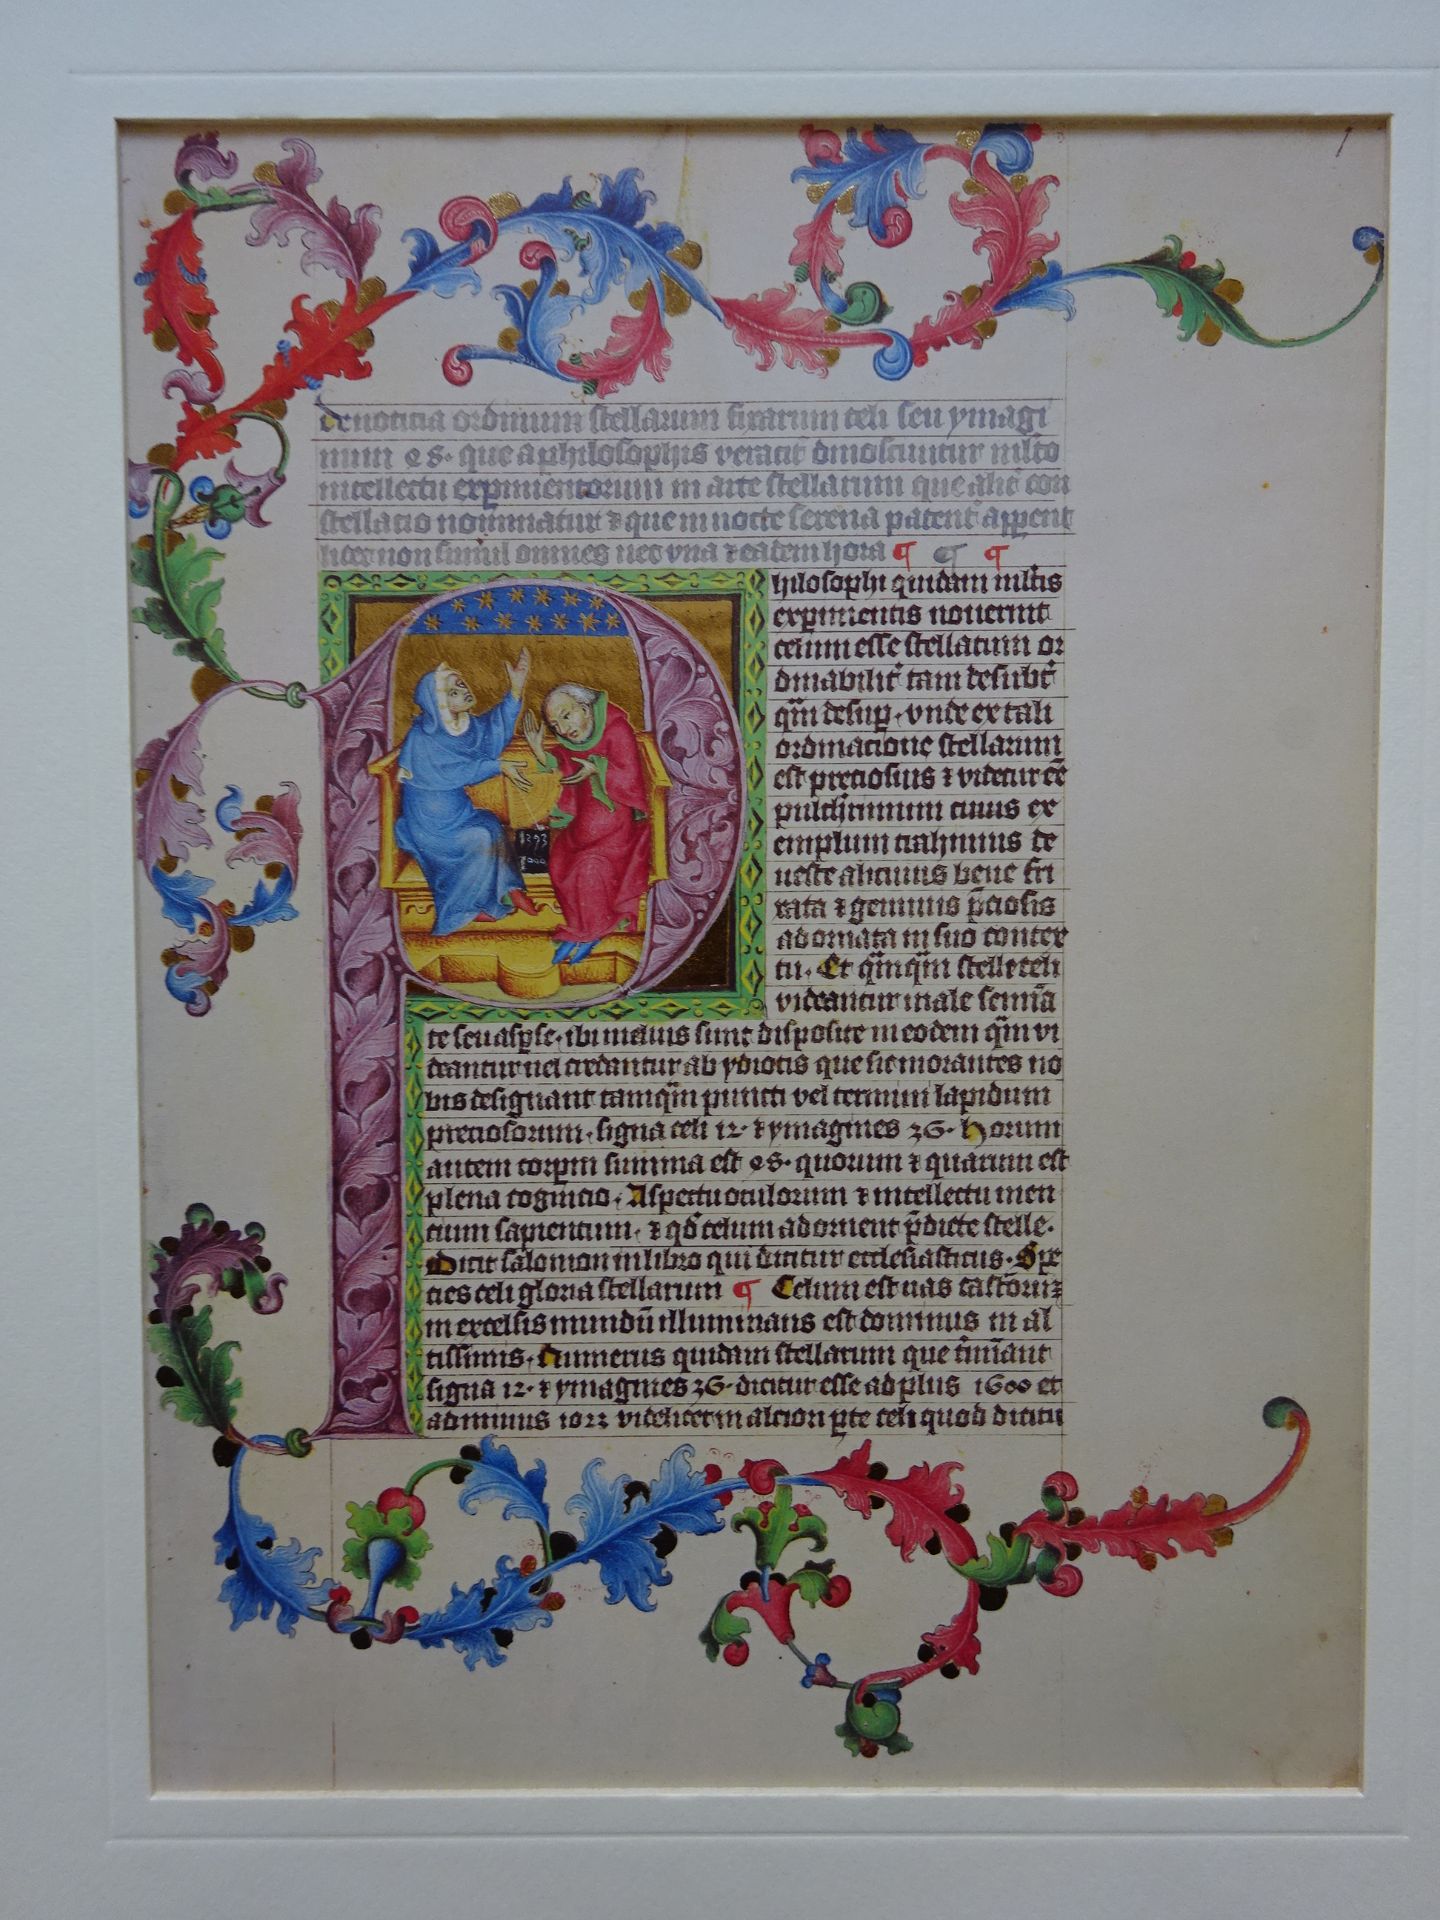 1
de noticia ordinum stellarum fixarum celi seu ymagi
num 48. que a philosophis veracit dinoscuntur ml'to
intellectu expimentorum in arte stellarum que alit' con
stellatio nominatur ⁊ que in nocte serena patent' apperit
licet non simul omnes nec vna ⁊ eadem hora ¶ ¶ ¶
Philosophi quidam ml'tis
expimentis nouerunt
celum esse stellatum or
dinabilit' tam desubt'
qm̄ desup. vnde ex tali
ordinacione stellarum
est preciosius ⁊ videtur ee
pulchrimum cuius ex
emplum trahimus de
ueste alicuius bene fri
xata ⁊ gemmis p̄ciosis
adornata in suo contex
tu. Et qm̄qm̄ stelle celi
videantur male semīa
1293
1000
te seu asp̄se. ibi in eodem qm̄ vi
deantur uel credantur ab ydiotis que sic morantes no
bis designant tamqm̄ puncti vel termini lapidum
preciosorum. signa celi 12. ⁊ ymagines 36. Horum
autem corpm summa est 48. quorum ⁊ quarum est
plena cognicio. Aspectu oculorum ⁊ intellectu men
cium sapientum. ⁊ qd celum adornent p̄dicte stelle.
Dicit salomon in libro qui dicitur ecclesiasticus. Spe
cies celi gloria stellarum ¶ Celum est uas castrorum
in excelsis mundū illuminans est dominus in al
tissimis. Numerus quidam stellarum que
signa 12. ⁊ ymagines 36. dicitur esse ad plus 1600 et
ad minus 1022 videlicet in alciori p̄te celi quod dicitu